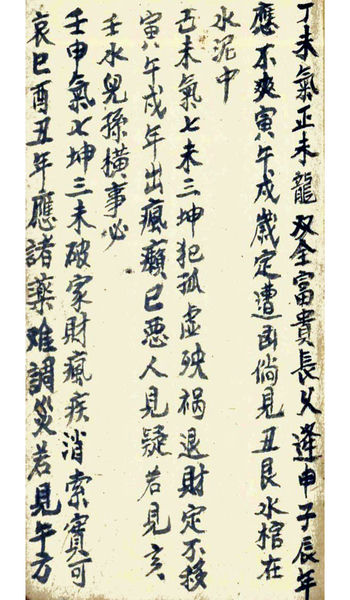 丁未氣正未龍双全富貴長久逢申子辰年
應不爽寅午戌歲定遭凶倘見丑艮水棺在
水泥中
己未氣七未三坤犯孤虚殃禍退財定不移
寅午戌年出瘋癲已惡人見疑若見亥
壬水兒孫橫事必
壬申氣七坤三未破家財瘋疾消索實可
哀巳酉丑年應諸藥难調災若見午方